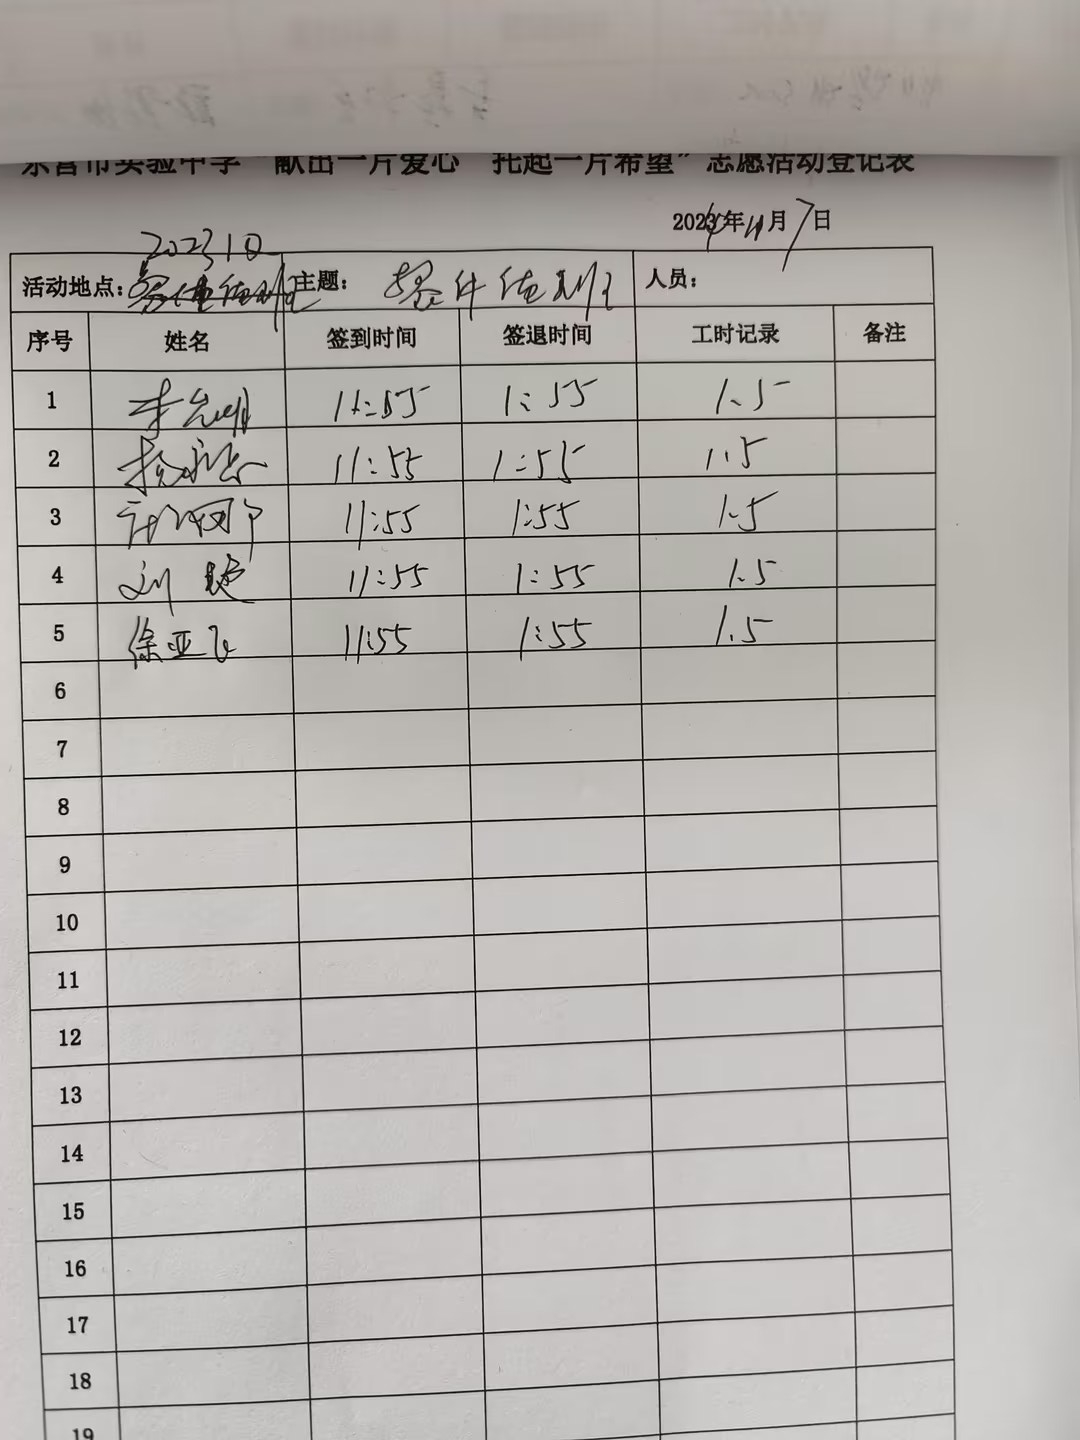 东营市实验中学"献出一片爱心 托起一片希望"志愿活动登记表
2024年11月7日
202310
活动地点: 主题: 人员:
序号 姓名 签到时间 签退时间 工时记录 备注
1 11:55 1:55 1.5
2 11:55 1:55 1.5
3 11:55 1:55 1.5
4 刘 11:55 1:55 1.5
5 徐亚飞 11:55 1:55 1.5
6
7
8
9
10
11
12
13
14
15
16
17
18
19